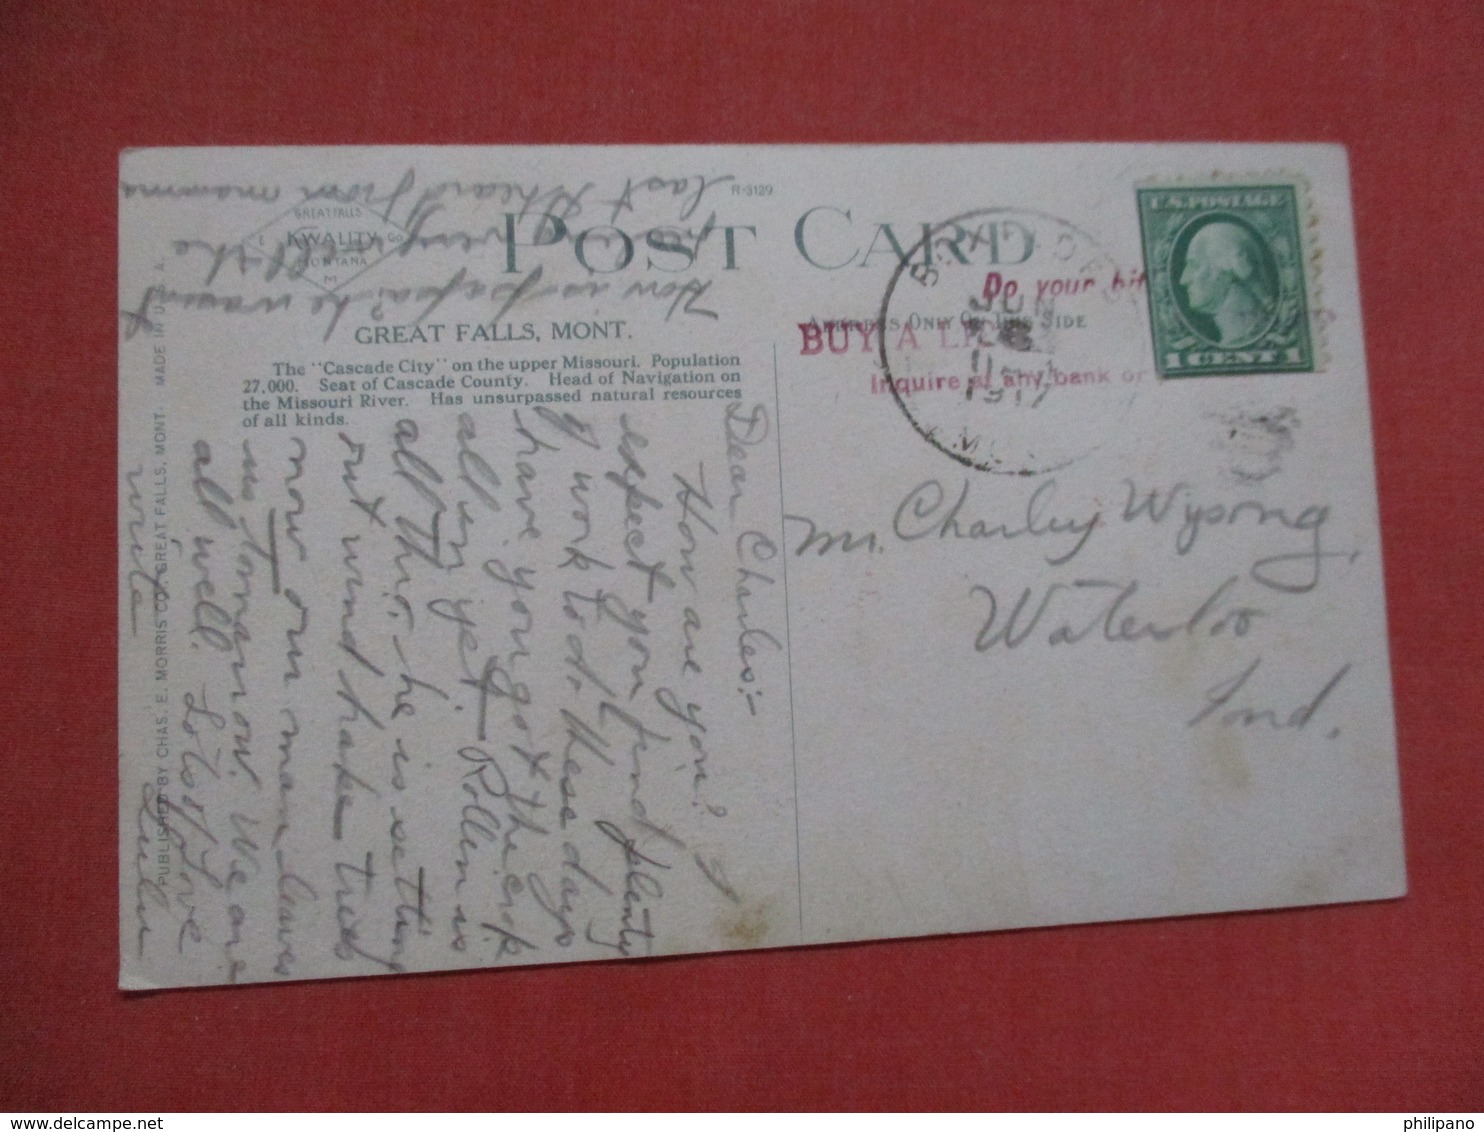 POST CARD
R-3129
GREAT FALLS
KWALITY
MONTANA
M
E
Co
ADDRESS ONLY ON THIS SIDE
Do your bit
BUY A LI
Inquire at any bank or
JUN
1917
U.S. POSTAGE
1 CENT 1
GREAT FALLS, MONT.
The "Cascade City" on the upper Missouri. Population
27,000. Seat of Cascade County. Head of Navigation on
the Missouri River. Has unsurpassed natural resources
of all kinds.
PUBLISHED BY CHAS. E. MORRIS CO. GREAT FALLS, MONT. MADE IN U.S.A.
Mr. Charley Wysong,
Waterloo
Ind.
Dear Charles:-
How are you? I
expect you find plenty
of work to do these days
have you got the crop
all in yet. Rollin is
all thro, he is setting
out wind brake trees
now our man leaves
us tomorrow. We are
all well. Lots of Love
write Lulu
How is papa? he wasnt
very well the
last I heard from mamma
philipano